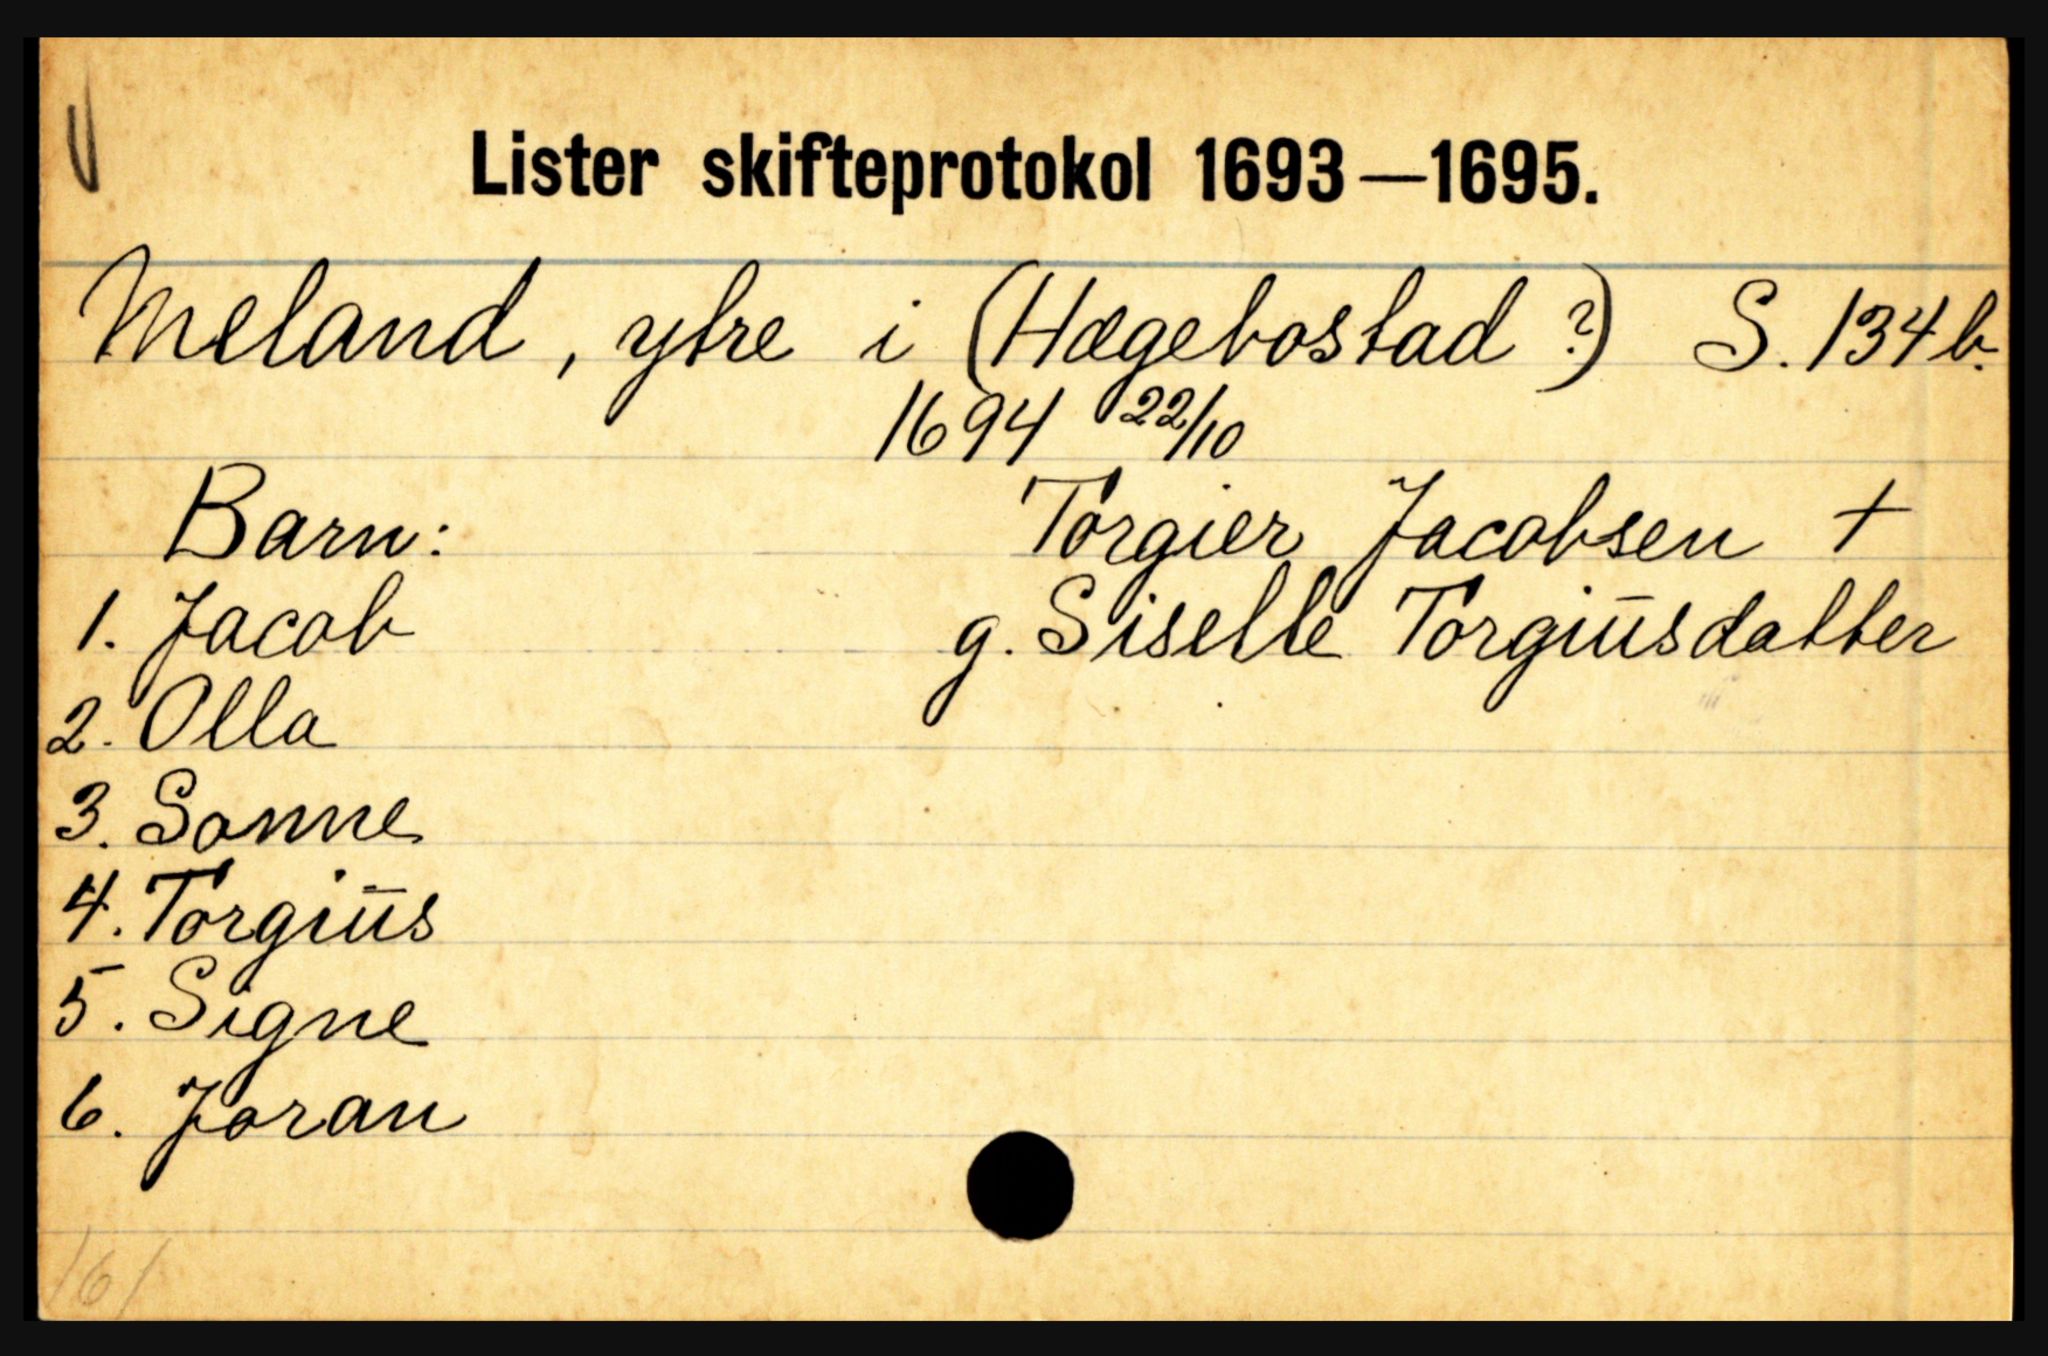 Lister skifteprotokol 1693—1695.
Meland, ytre i (Hægebostad ?) S. 134 b.
1694 22/10
Barn: Torgier Jacobsen +
1. Jacob g. Siselle Torgiūsdatter
2. Olla
3. Sonne
4. Torgiūs
5. Signe
6. Joran
161